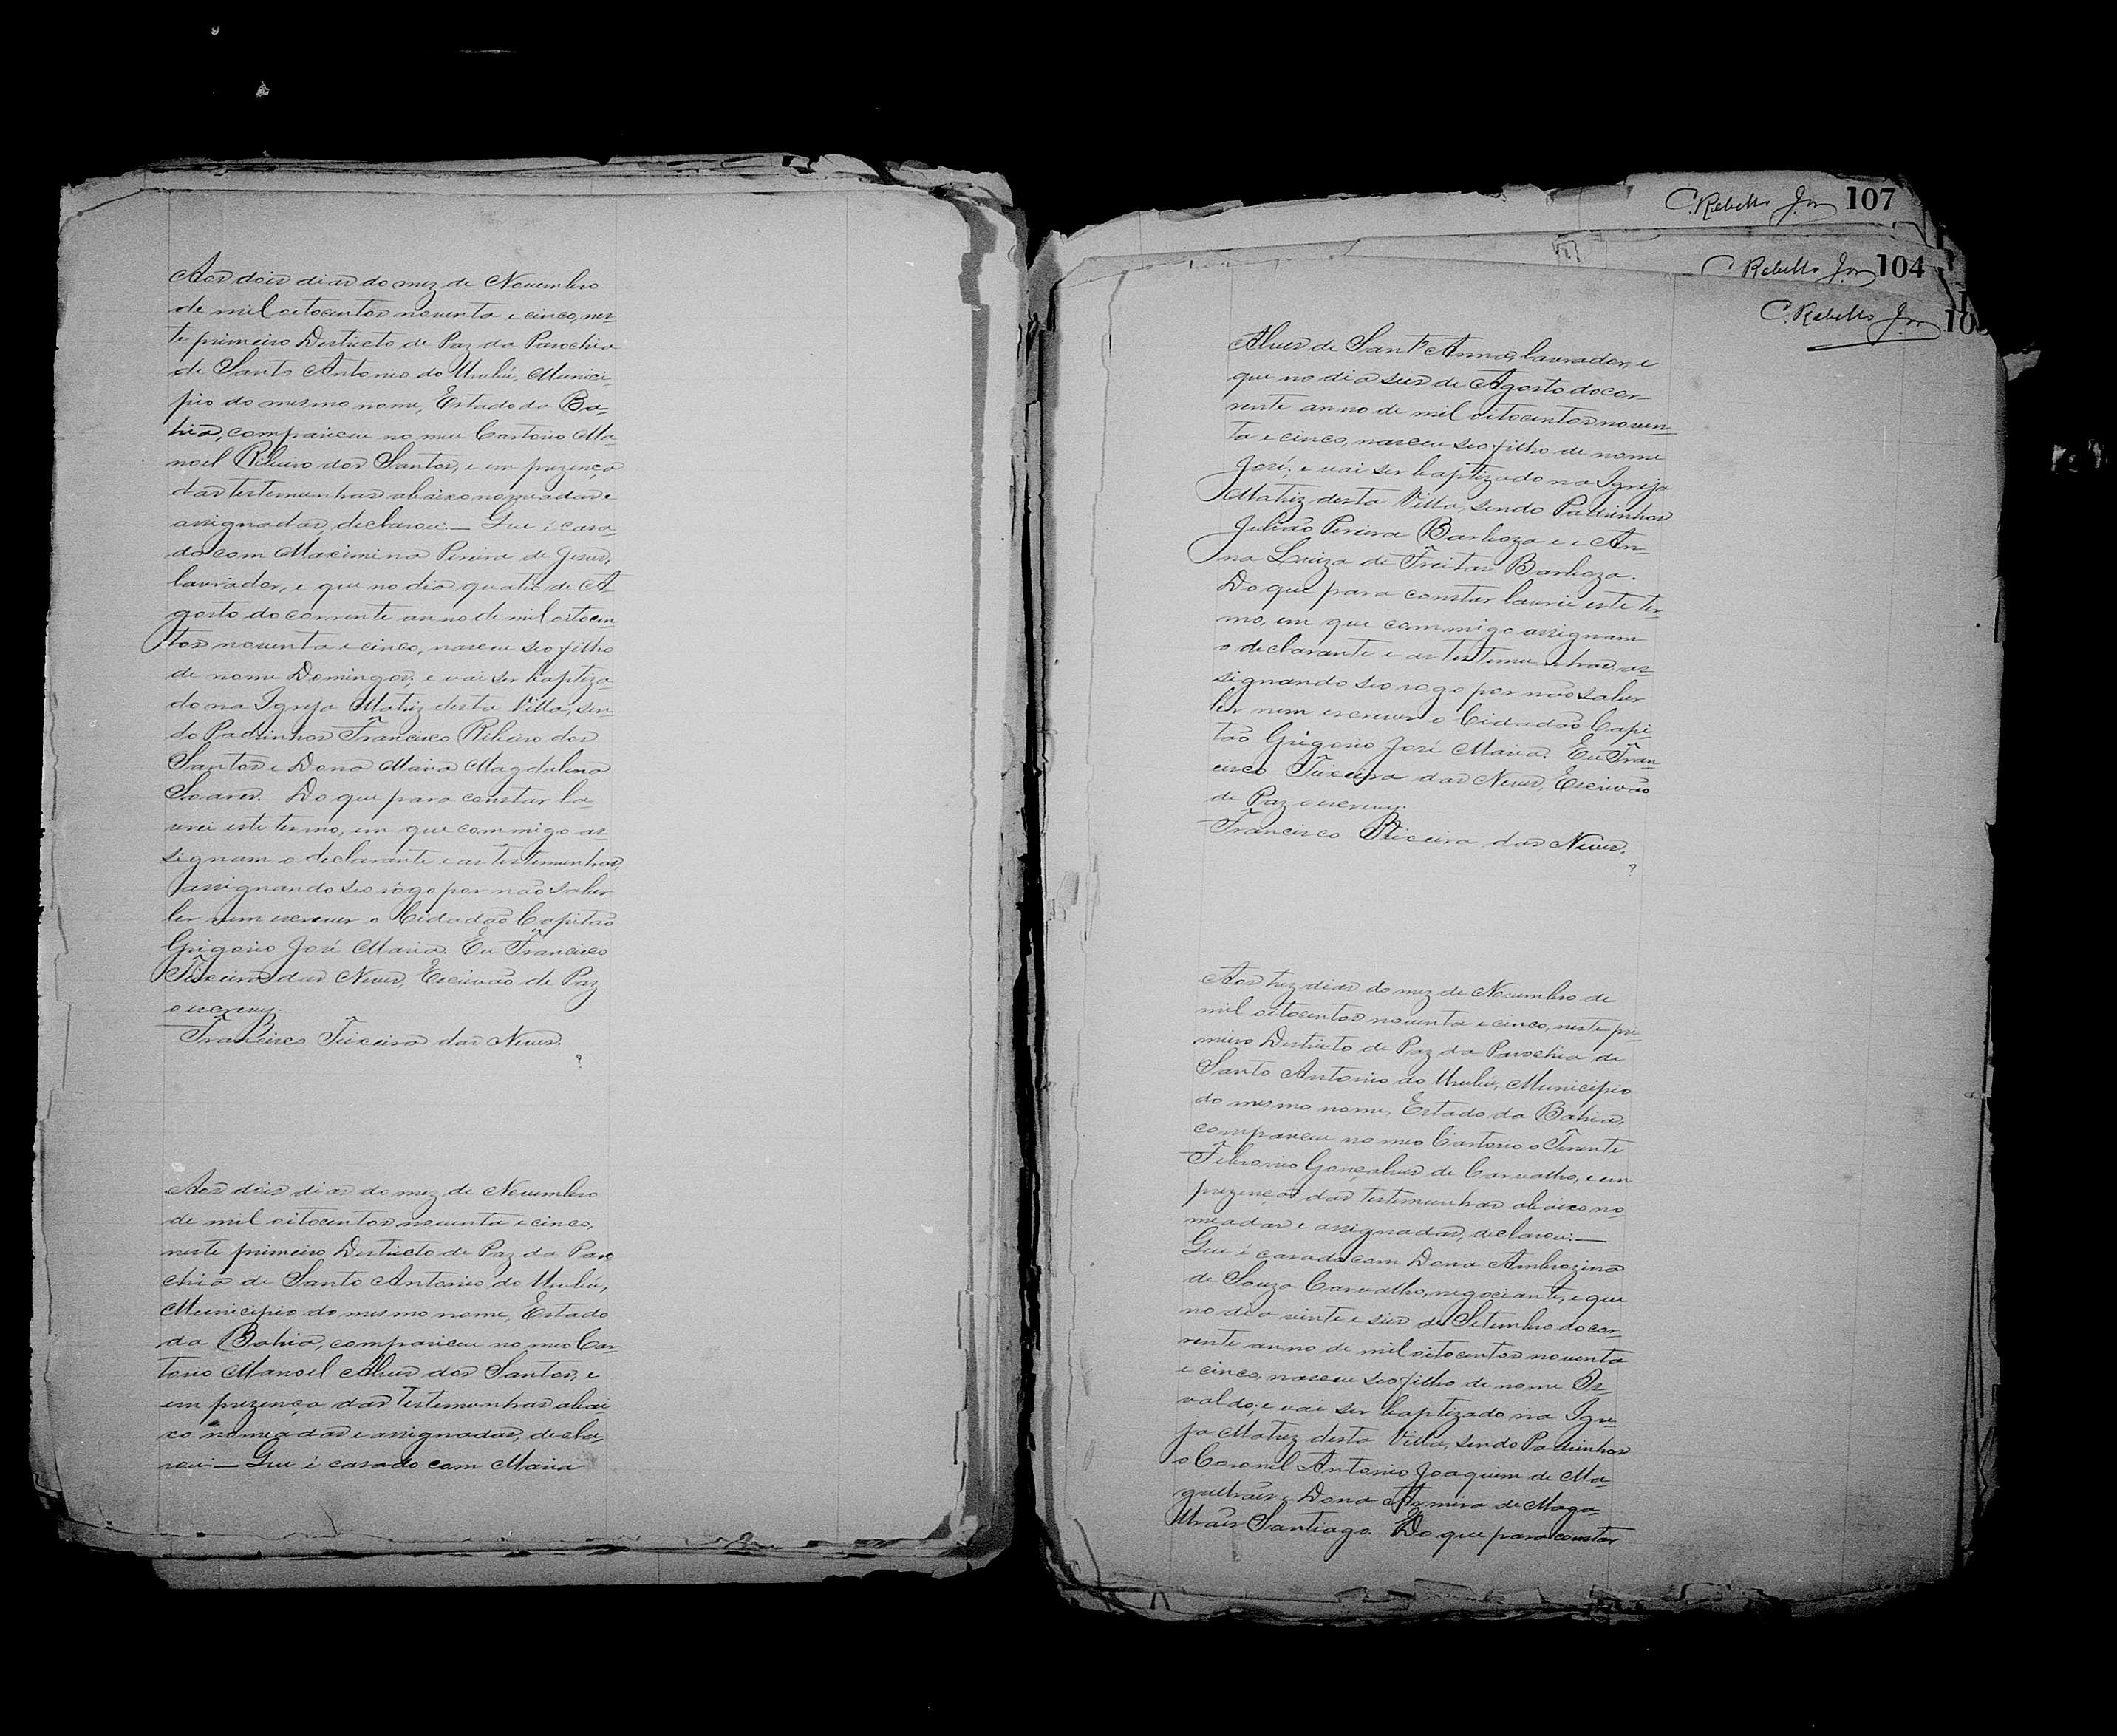 Aos dois dias do mez de Novembro
de mil oitocentos noventa e cinco, nes-
te primeiro Destricto de Paz da Parochia
de Santo Antonio do Urubú, Munici-
pio do mesmo nome, Estado da Ba-
hia, compareceu no meu Cartorio Ma-
noel Ribeiro dos Santos, e em prezença
das testemunhas abaixo nomeadas e
assignadas, declarou:— Que é casa-
do com Maximina Pereira de Jesus,
lavrador, e que no dia quatro de A-
gosto do corrente anno de mil oitocen
tos noventa e cinco, nasceu seo filho
de nome Domingos, e vai ser baptiza-
do na Igreja Matriz desta Villa, sen-
do Padrinhos Francisco Ribeiro dos
Santos e Dona Maria Magdalena
Soares. Do que para constar la-
vrei este termo, em que commigo as-
signam o declarante e as testemunhas,
assignando seo rogo por não saber
ler nem escrever o Cidadão Capitão
Grigorio José Maria. Eu Francisco
Teixeira das Neves, Escrivão de Paz
o escrevy.
Francisco Teixeira das Neves.
Aos dois dias do mez de Novembro
de mil oitocentos noventa e cinco,
neste primeiro Destricto de Paz da Paro
chia de Santo Antonio do Urubú,
Municipio do mesmo nome, Estado
da Bahia, compareceu no meo Car-
torio Manoel Alves dos Santos, e
em prezença das testemunhas abai-
xo nomeadas e assignadas, decla-
rou:— Que é casado com Maria
C. Rebello Jor 107
C. Rebello Jor 104
C. Rebello Jor 10
Alves de Sant'Anna, lavrador, e
que no dia seis de Agosto do cor-
rente anno de mil oitocentos noven-
ta e cinco, nasceu seo filho de nome
José, e vai ser baptizado na Igreja
Matriz desta Villa, sendo Padrinhos
Julião Pereira Barboza e e An-
na Luiza de Freitas Barboza.
Do que para constar lavrei este ter-
mo, em que commigo assignam
o declarante e as testemunhas, as-
signando seo rogo por não saber
ler nem escrever o Cidadão Capi-
tão Grigorio José Maria. Eu Fran-
cisco Teixeira das Neves, Escrivão
de Paz o escrevy.
Francisco Teixeira das Neves.
Aos trez dias do mez de Novembro de
mil oitocentos noventa e cinco, neste pri-
meiro Destricto de Paz da Parochia de
Santo Antonio do Urubú, Municipio
do mesmo nome, Estado da Bahia,
compareceu no meo Cartorio o Tenente
Febronio Gonçalves de Carvalho, e em
prezença das testemunhas abaixo no-
meadas e assignadas, declarou:—
Que é casado com Dona Ambrozina
de Souza Carvalho, negociante, e que
no dia vinte e seis de Setembro do cor-
rente anno de mil oitocentos noventa
e cinco, nasceu seo filho de nome Os-
valdo, e vai ser baptizado na Igre-
ja Matriz desta Villa, sendo Padrinhos
o Coronel Antonio Joaquim de Ma-
galhães e Dona de Maga-
lhães Santiago. Do que para constar